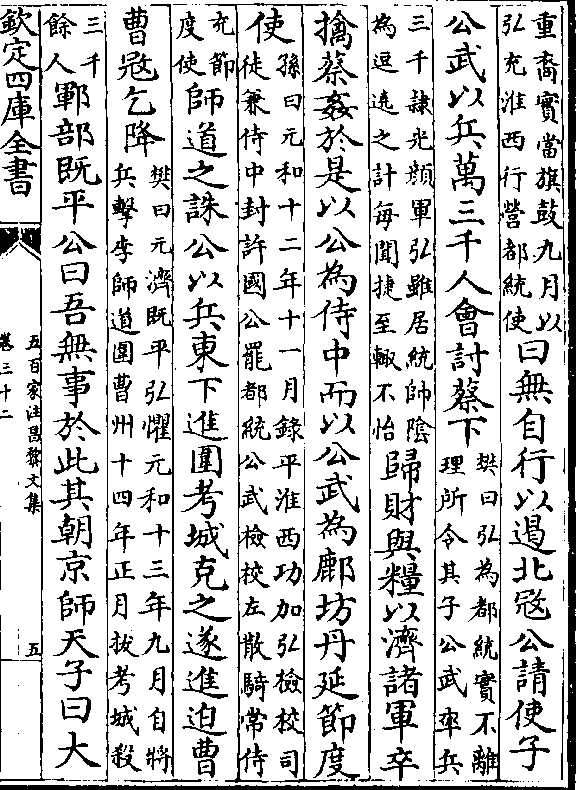 重裔實當旗鼓九月以
弘充淮西行營都統使
曰無自行以遏北寇公請使子
公武以兵萬三千人會討蔡下
樊曰弘為都統實不離
理所令其子公武率兵
三千隷光顔軍弘雖居統帥陰
為逗遶之計每聞捷至輙不怡
歸財與糧以濟諸軍卒
擒蔡姦於是以公為侍中而以公武為鄜坊丹延節度
使
孫曰元和十二年十一月錄平淮西功加弘檢校司
徒兼侍中封許國公罷都統公武檢校左散騎常侍
充節
度使
師道之誅公以兵東下進圍考城克之遂進迫曹
曹寇乞降
樊曰元濟既平弘懼元和十三年九月自將
兵擊李師道圍曹州十四年正月拔考城殺
三千
餘人
鄆部既平公曰吾無事於此其朝京師天子曰大
欽定四庫全書
五百家注昌黎文集
卷三十二
五